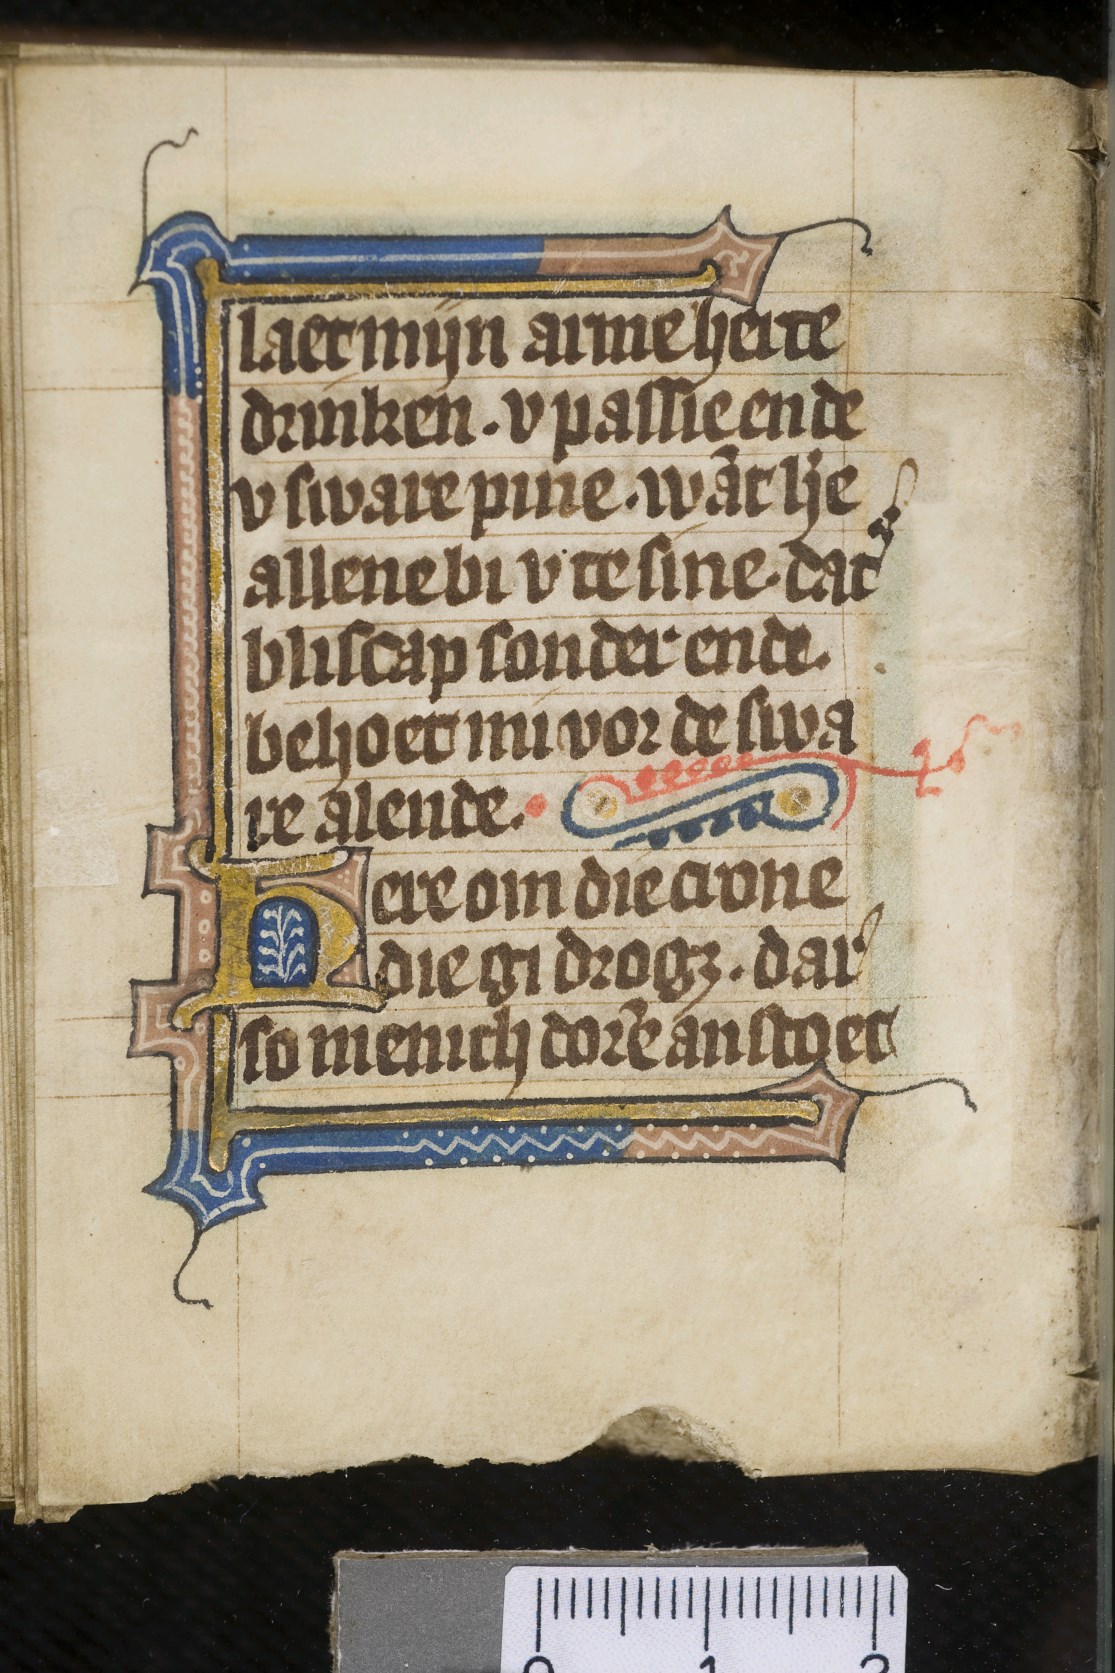 laet mijn arme herte
drinken. v passie ende
v sware pine. wāt lẏe
allene bi v te sine. dat
bliscap sonder ende.
behoet mi vor de swa
re alende.
Here om die crone
die gi drogꝫ. dar
so menich dorē an stoet
0 1 2